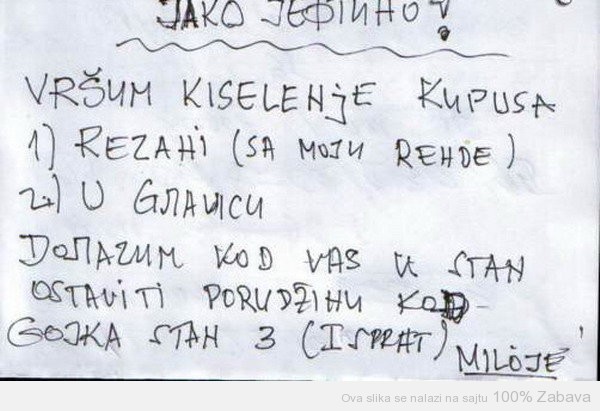 ЈАКО ЈЕФТИНО!
VRŠИM KISELEНjE KUPUSA
1) REZAНI (SA MOJU REНDE)
2) U GЛAVICU
DOЛAZИM KOD VAS U STAN
OSTAVITI PORUDŽIНU KOD
GOJKA STAN 3 (ISPRAT)
MILOJE
Ova slika se nalazi na sajtu 100% Zabava